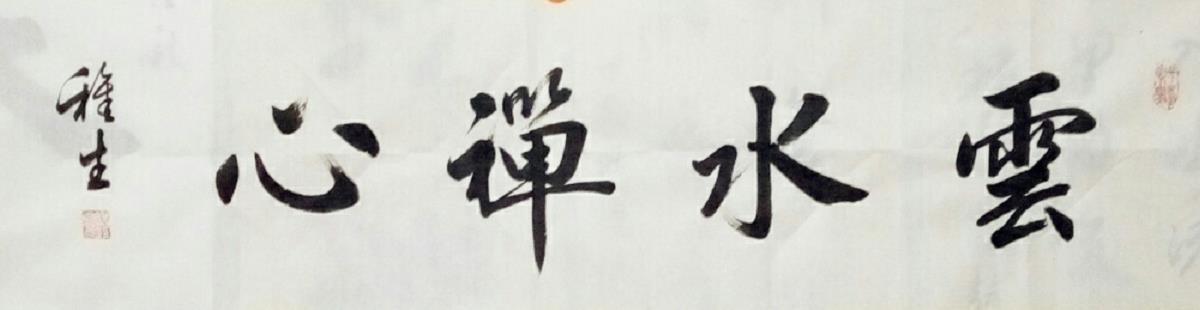 雲水禪心
稚生